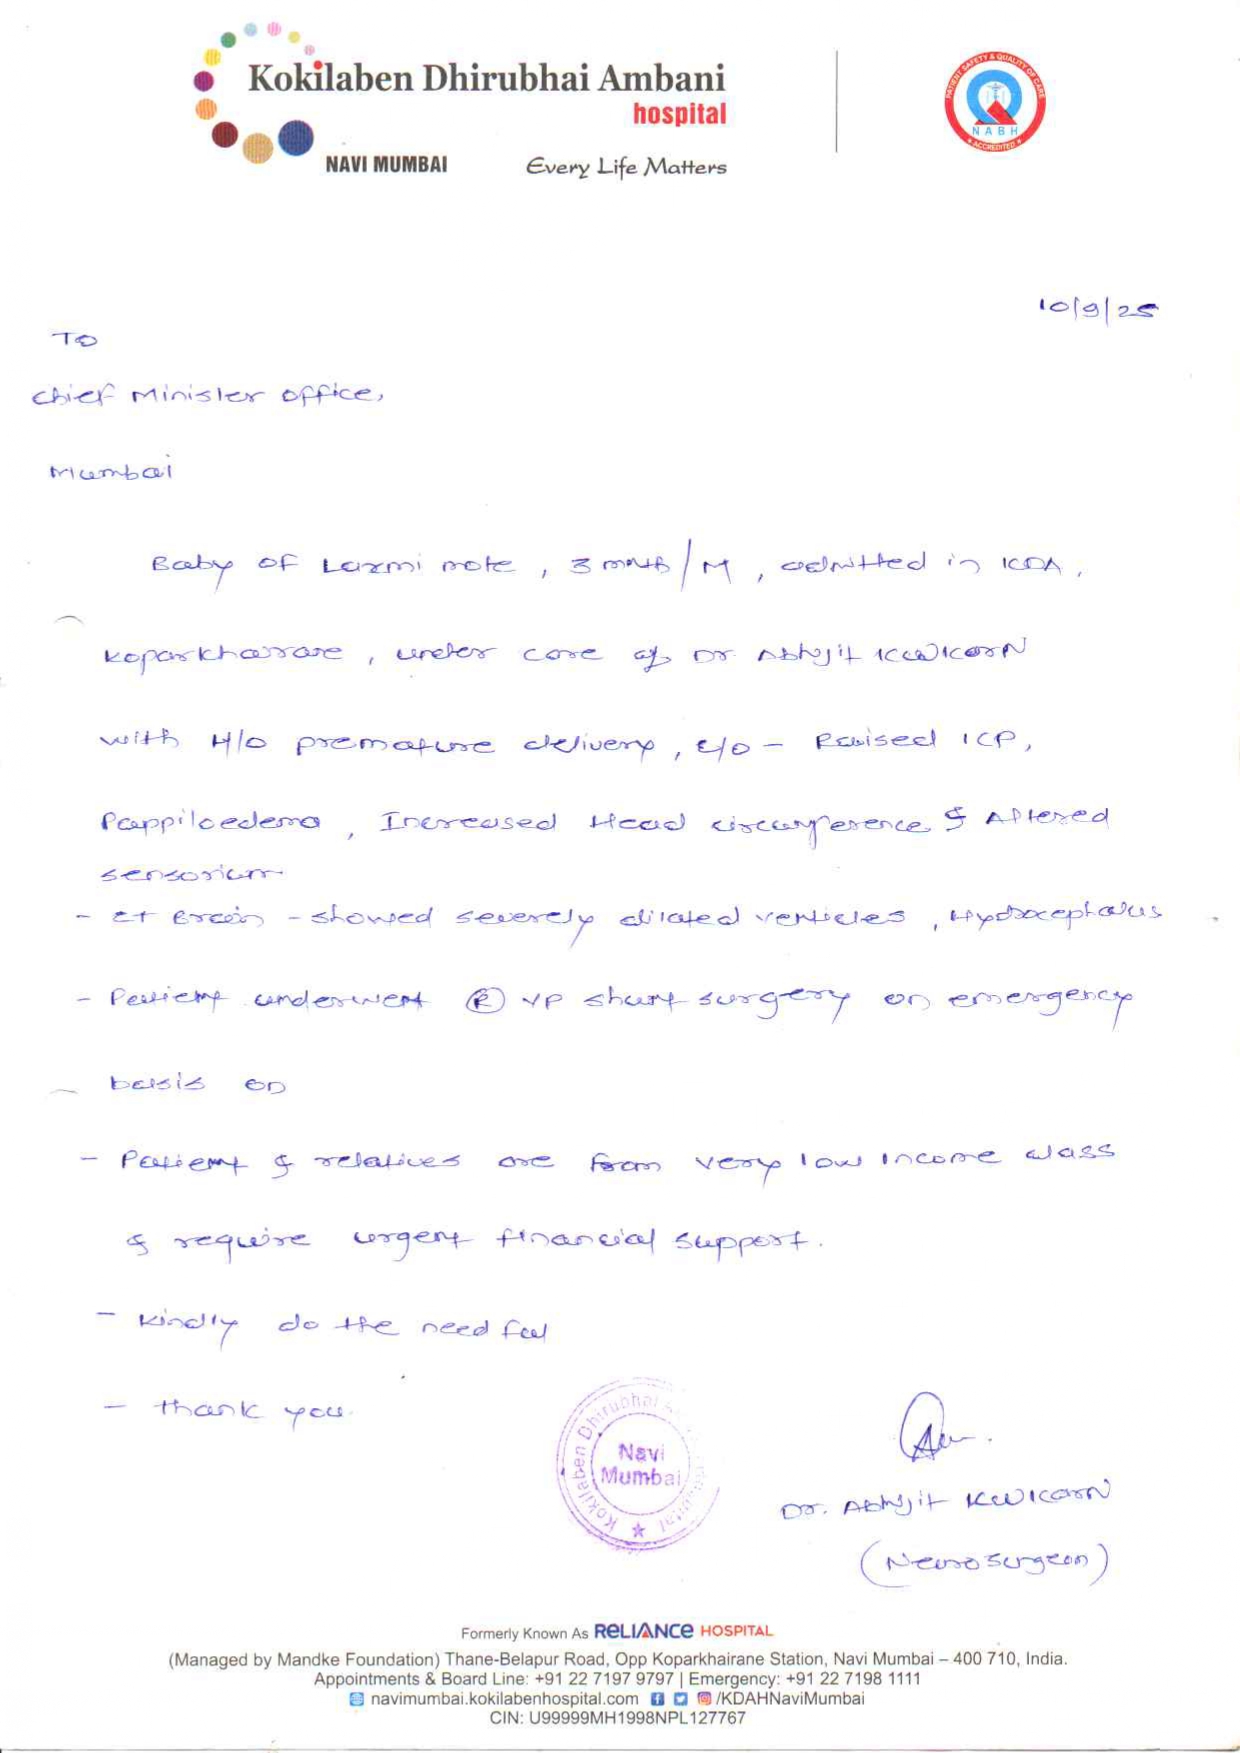 Kokilaben Dhirubhai Ambani
hospital
NAVI MUMBAI
Every Life Matters
PATIENT SAFETY & QUALITY OF CARE
NABH
ACCREDITED
10/9/25
To
Chief Minister office,
Mumbai
Baby of Laxmi mote, 3 mnth/M, admitted in KDA,
Koparkharane, under care of Dr. Abhijit
with H/O premature delivery, c/o - Raised ICP,
Pappiloedema, Increased Head circumference & Altered
sensorium
- CT Brain - showed severely dilated venticles, Hydrocephalus
- Patient underwent (R) VP shunt surgery on emergency
basis on
- Patient & relatives are from very low income class
& require urgent financial support.
- Kindly do the need ful
- thank you.
Kokilaben Dhirubhai
Navi
Mumbai
Dr. Abhijit
(Neurosurgeon)
Formerly Known As RELIANCE HOSPITAL
(Managed by Mandke Foundation) Thane-Belapur Road, Opp Koparkhairane Station, Navi Mumbai – 400 710, India.
Appointments & Board Line: +91 22 7197 9797 | Emergency: +91 22 7198 1111
navimumbai.kokilabenhospital.com /KDAHNaviMumbai
CIN: U99999MH1998NPL127767